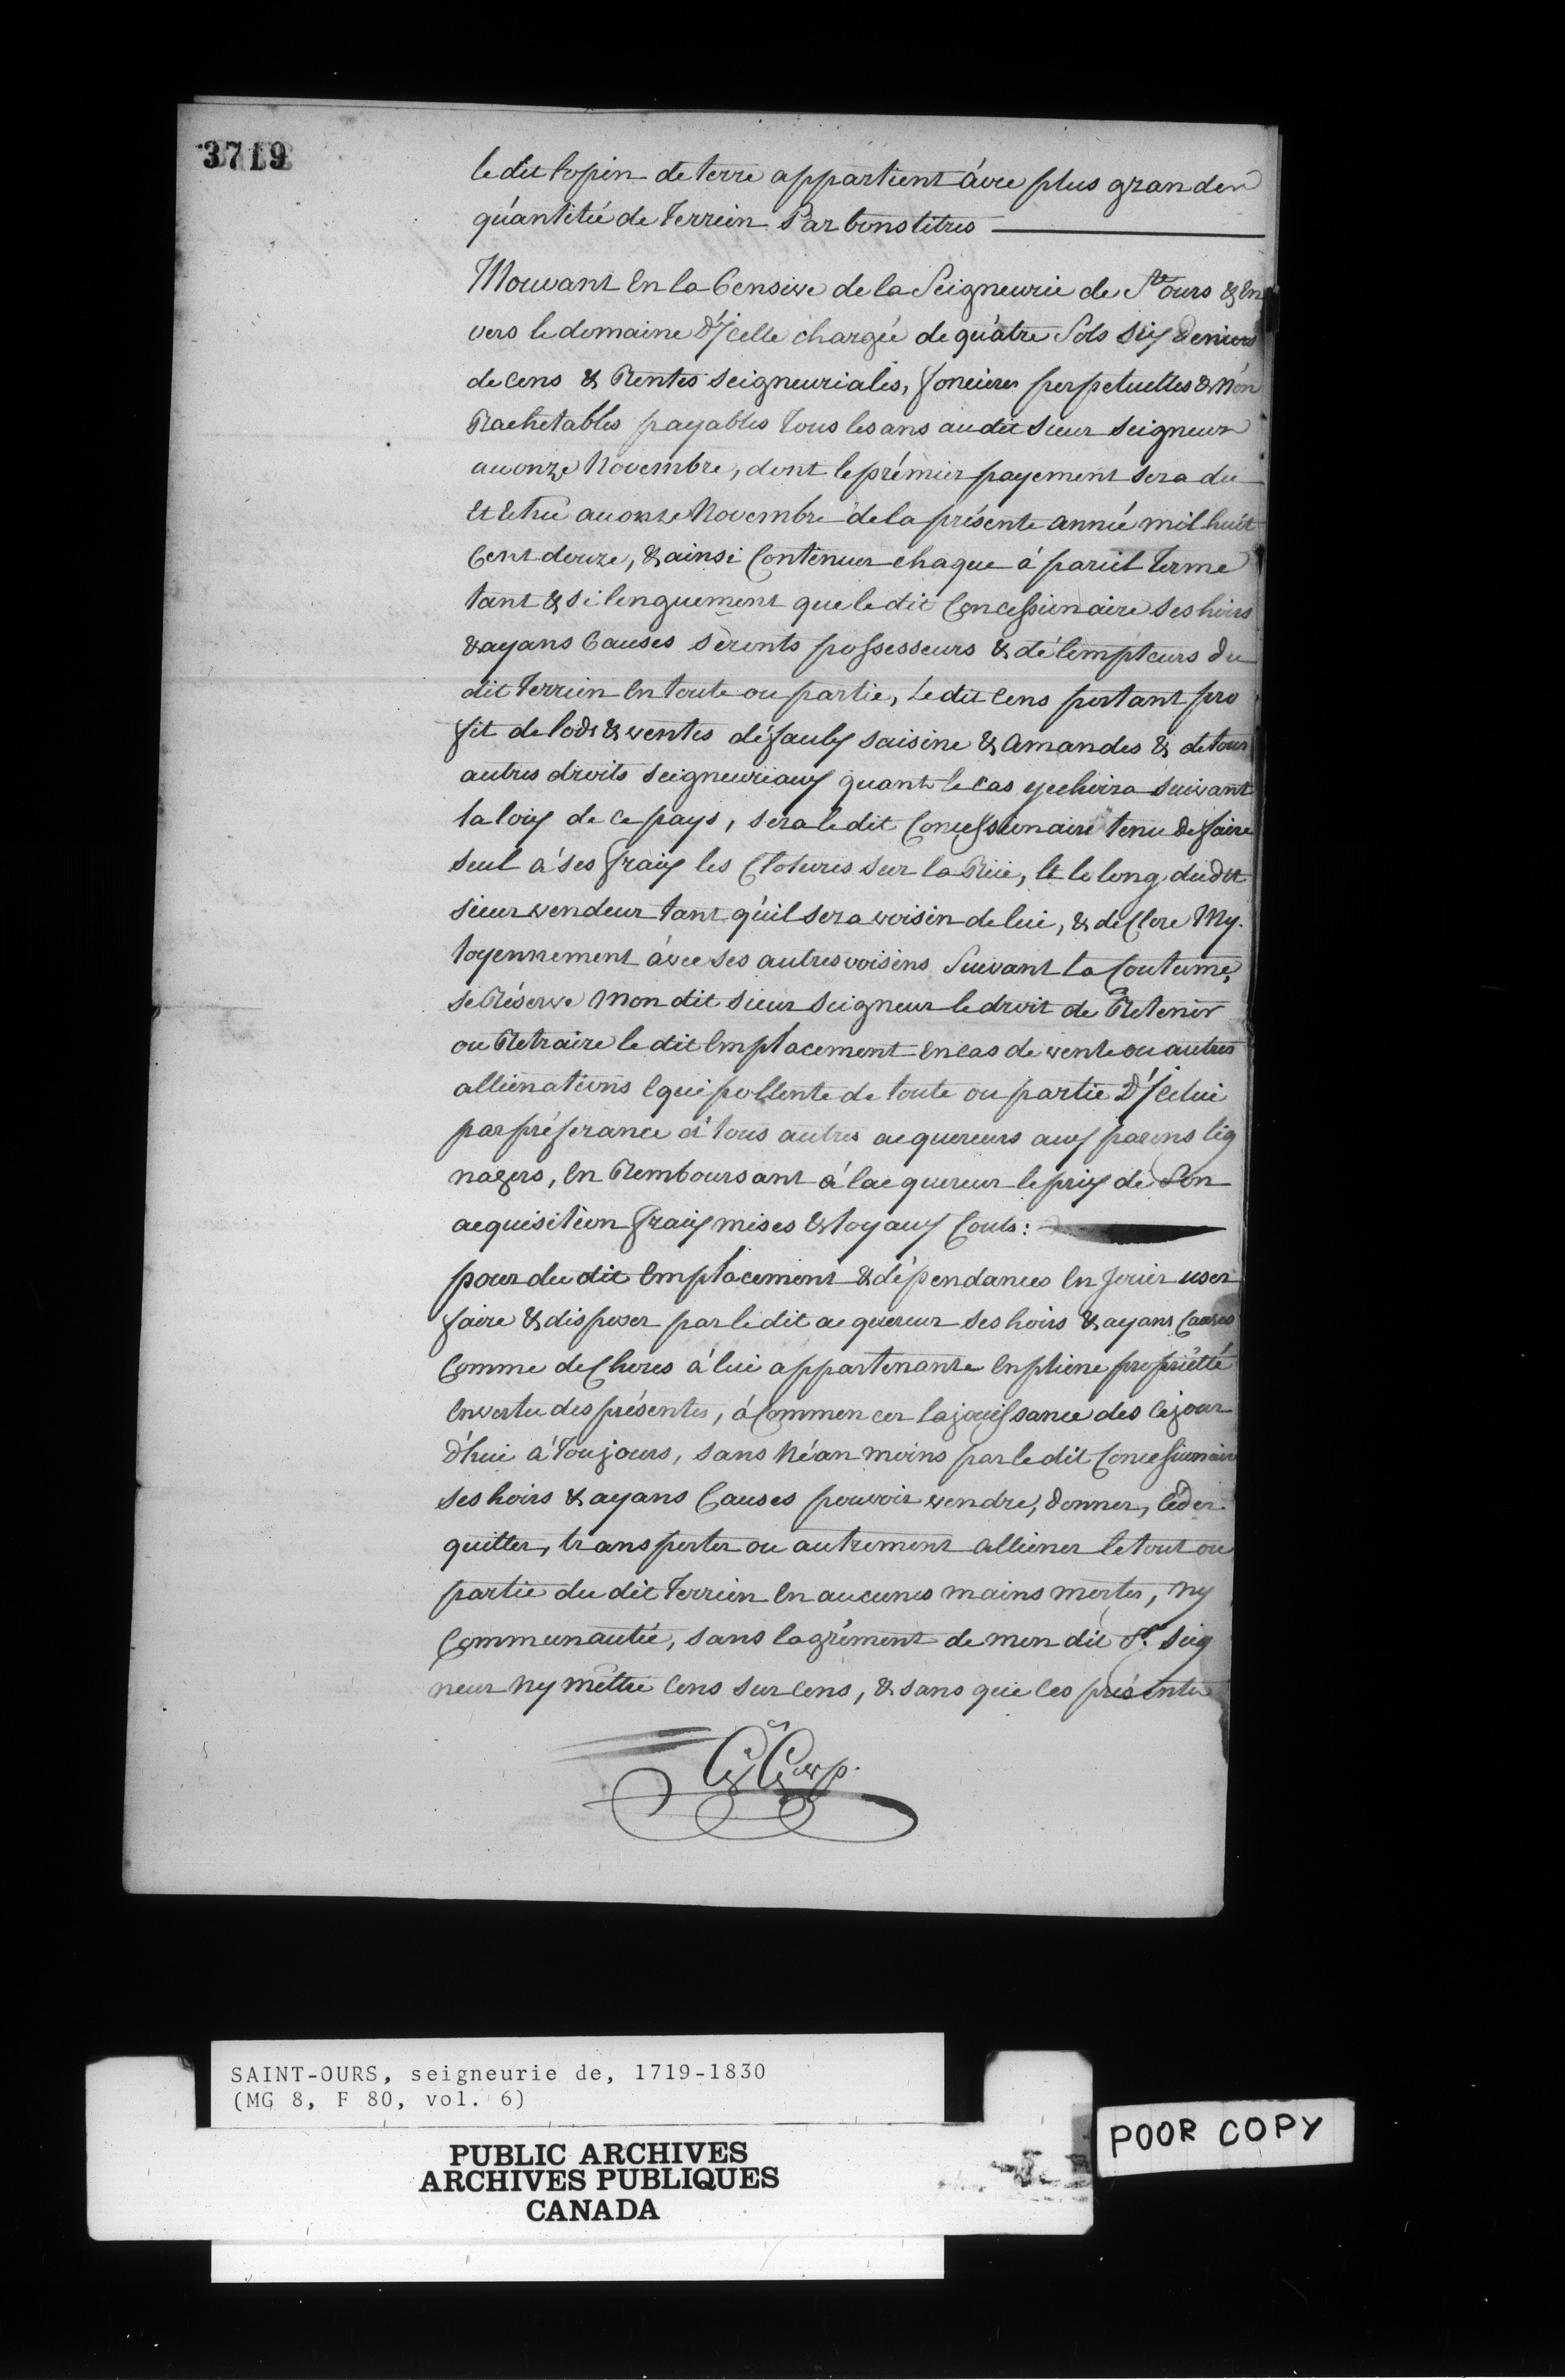 3719
le dit lopin de terre appartient àvec plus grande
quántitée de Terrein Par bons titres
Mouvant En la Censive de la Seigneurie de St ours & En
vers le domaine D'Jcelle chargée de quátre Sols Six Deniers
de Cens & Rentes Seigneuriales, foncieres perpetuelles & Nón
Rachetables payables Tous les ans au dit sieur Seigneur
au onze Novembre, dont le prémier payement sera du
Et Echu au onze Novembre de la présente année mil huit
Cent douze, & ainsi Continuer chaque à pareil Terme
tant & si longuement que le dit Concessionaire ses hoirs
& ayans Causes séronts possesseurs & détempteurs du
dit Terrein En toute ou partie, Le dit Cens portant pro
fit de lods & ventes défauly saisine & Amandes & de tous
autres droits seigneuriauy quant le cas yechoira suivant
la loiy de ce pays, sera le dit Concessionaire tenu de faire
seul à ses fraiy les Clotures sur la Rüe, Et le long du dit
sieur vendeur tant qúil sera voisin de lui, & de Clore My.
toyennement àvec ses autres voisins Suivant la Coutume,
se Réserve Mon dit sieur Seigneur le droit de Retenir
ou Retraire le dit Emplacement En cas de vente ou autres
alliénations Equipollente de toute ou partie D'Jcelui
par préferance à tous autres acquereurs auy parens lig
nagers, En Remboursant à lacquereur le priy de Son
acquisition fraiy mises & loyauy Couts:
pour du dit Emplacement & dépendances En Jouir user
faire & disposer par le dit acquereur ses hoirs & ayans Causes
Comme de Choses à lui appartenante En pliene propriétté
En vertu des présentes, à Commencer la jouissance des Cejour
d'hui à Toujours, sans Néan moins par le dit Concessionaire
ses hoirs & ayans Causes pouvoir vendre, donner, Céder
quitter, transporter ou autrement alliener le tout ou
partie du dit Terrein En aucunes mains mortes, ny
Communautée, sans lagrément de mon dit Sr. Seig
neur Ny mettre Cens sur Cens, & sans que Ces présente
SAINT-OURS, seigneurie de, 1719-1830
(MG 8, F 80, vol. 6)
PUBLIC ARCHIVES
ARCHIVES PUBLIQUES
CANADA
POOR COPY